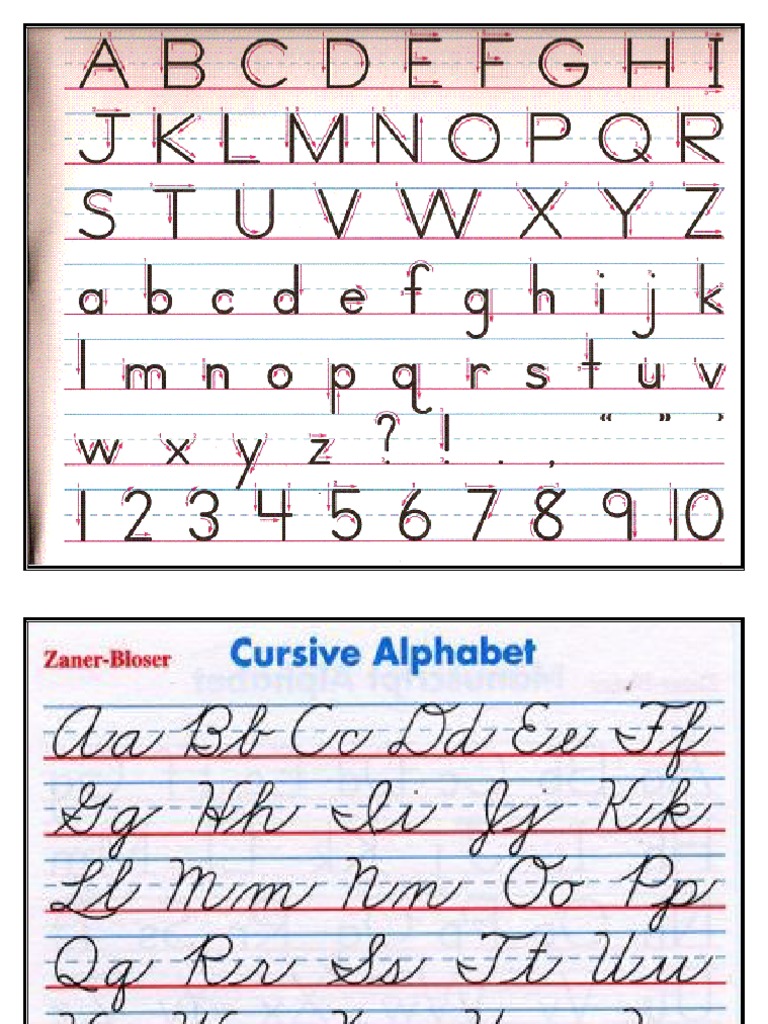 A B C D E F G H I
J K L M N O P Q R
S T U V W X Y Z
a b c d e f g h i j k
l m n o p q r s t u v
w x y z ? ! . , “ ” ’
1 2 3 4 5 6 7 8 9 10
Zaner-Bloser Cursive Alphabet
Aa Bb Cc Dd Ee Ff
Gg Hh Ii Jj Kk
Ll Mm Nn Oo Pp
Qq Rr Ss Tt Uu